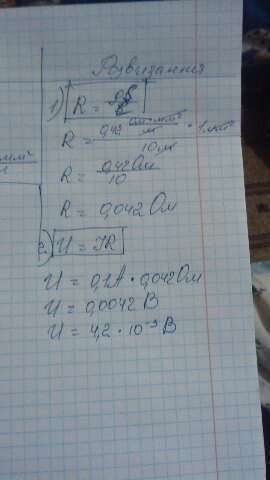 Розв'язання
1) R =
R = 0,42 Ом·мм² / м / 10 · 1
R = 0,42 Ом / 10
R = 0,042 Ом
2) U = IR
U = 0,1A · 0,042 Ом
U = 0,0042 В
U = 4,2 · 10⁻³ В
мм²